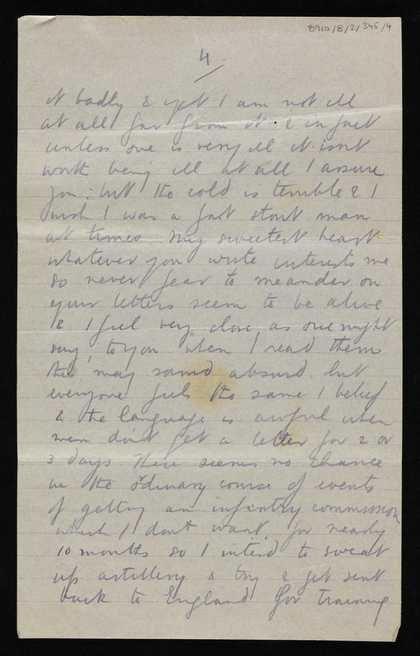 8910/8/2/345/4
4
it badly & yet I am not ill
at all far from it & in fact
unless one is very ill it isnt
worth being ill at all I assure
you: but the cold is terrible & I
wish I was a fat stout man
at times. My sweetest heart
whatever you write interests me
so never fear to meander on
your letters seem to be alive
& I feel very close, as one might
say, to you when I read them
this may sound absurd but
everyone feels the same I belief
& the language is awful when
men dont get a letter for 2 or
3 days There seems no chance
in the ordinary course of events
of getting an infantry commission
which I dont want, for nearly
10 months so I intend to sweat
up artillery & try & get sent
back to England for training